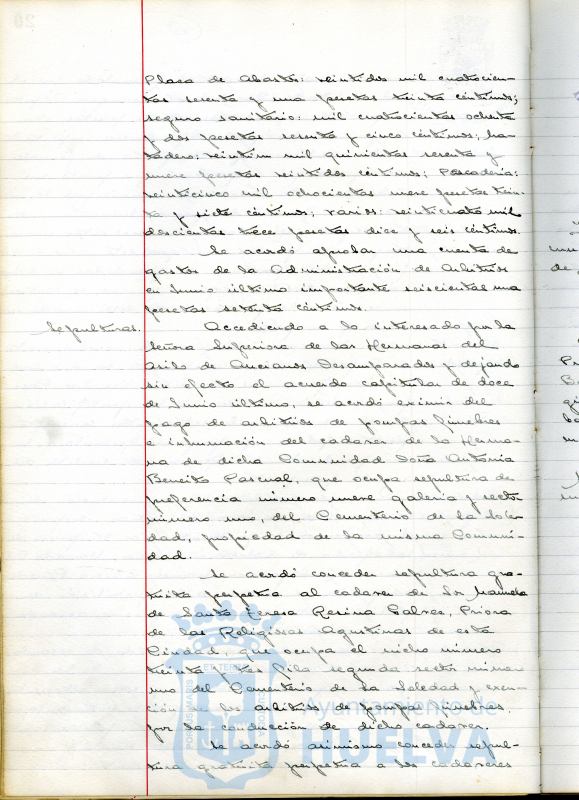 Plaza de Abastos: veintidos mil cuatrocien-
tas sesenta y una pesetas treinta céntimos;
seguro sanitario: mil cuatrocientas ochenta
y dos pesetas sesenta y cinco céntimos; ma-
tadero: veintiun mil quinientas sesenta y
nueve pesetas veintidos céntimos; Pescadería:
veinticinco mil ochocientas nueve pesetas trein-
ta y siete céntimos; varios: veinticuatro mil
doscientas trece pesetas diez y seis céntimos.
Se acordó aprobar una cuenta de
gastos de la Administración de Arbitrios
en Junio último importante seiscientas una
pesetas setenta céntimos.
Sepulturas.
Accediendo a lo interesado por la
Señora Superiora de las Hermanas del
Asilo de Ancianos Desamparados y dejando
sin efecto el acuerdo capitular de doce
de Junio último, se acordó eximir del
pago de arbitrios de pompas fúnebres
e inhumación del cadaver de la Herma-
na de dicha Comunidad Doña Antonia
Beneito Pascual, que ocupa sepultura de
preferencia número nueve galeria y sector
número uno, del Cementerio de la Sole-
dad, propiedad de la misma Comuni-
dad.
Se acordó conceder sepultura gra-
tuita perpetua al cadaver de Sor Manuela
de Santa Teresa Resina Galvez, Priora
de las Religiosas Agustinas de esta
Ciudad, que ocupa el nicho número
treinta y tres fila segunda sector número
uno del Cementerio de la Soledad y exen-
ción de los arbitrios de pompas fúnebres
por la conducción de dicho cadaver.
Se acordó asimismo conceder sepul-
tura gratuita perpetua a los cadaveres
Ayuntamiento de
HUELVA